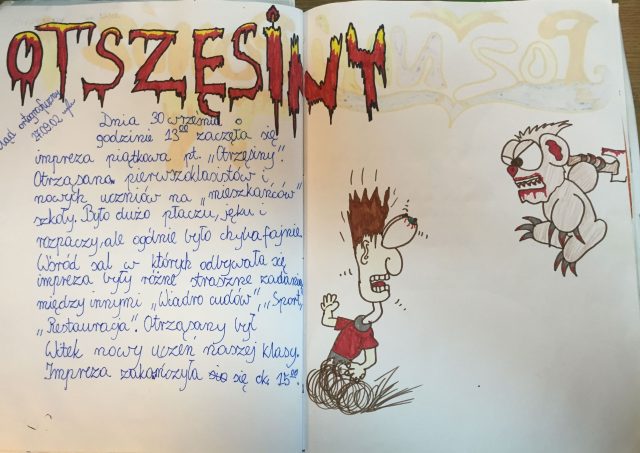 OTSZĘSINY
błąd ortograficzny
27.09.02
Dnia 30 września o
godzinie 13⁰⁰ zaczęła się
impreza piątkowa pt. „Otrzęsiny".
Otrząsano pierwszoklasistów i
nowych uczniów na „mieszkańców"
szkoły. Było dużo płaczu, jęku i
rozpaczy, ale ogólnie było chyba fajnie.
Wśród sal w których odbywała się
impreza były różne straszne zadania
między innymi „Wiadro cudów", „Sport,
„Restauracja". Otrząsany był
Witek nowy uczeń naszej klasy.
Impreza zakończyła się ok. 15⁰⁰.